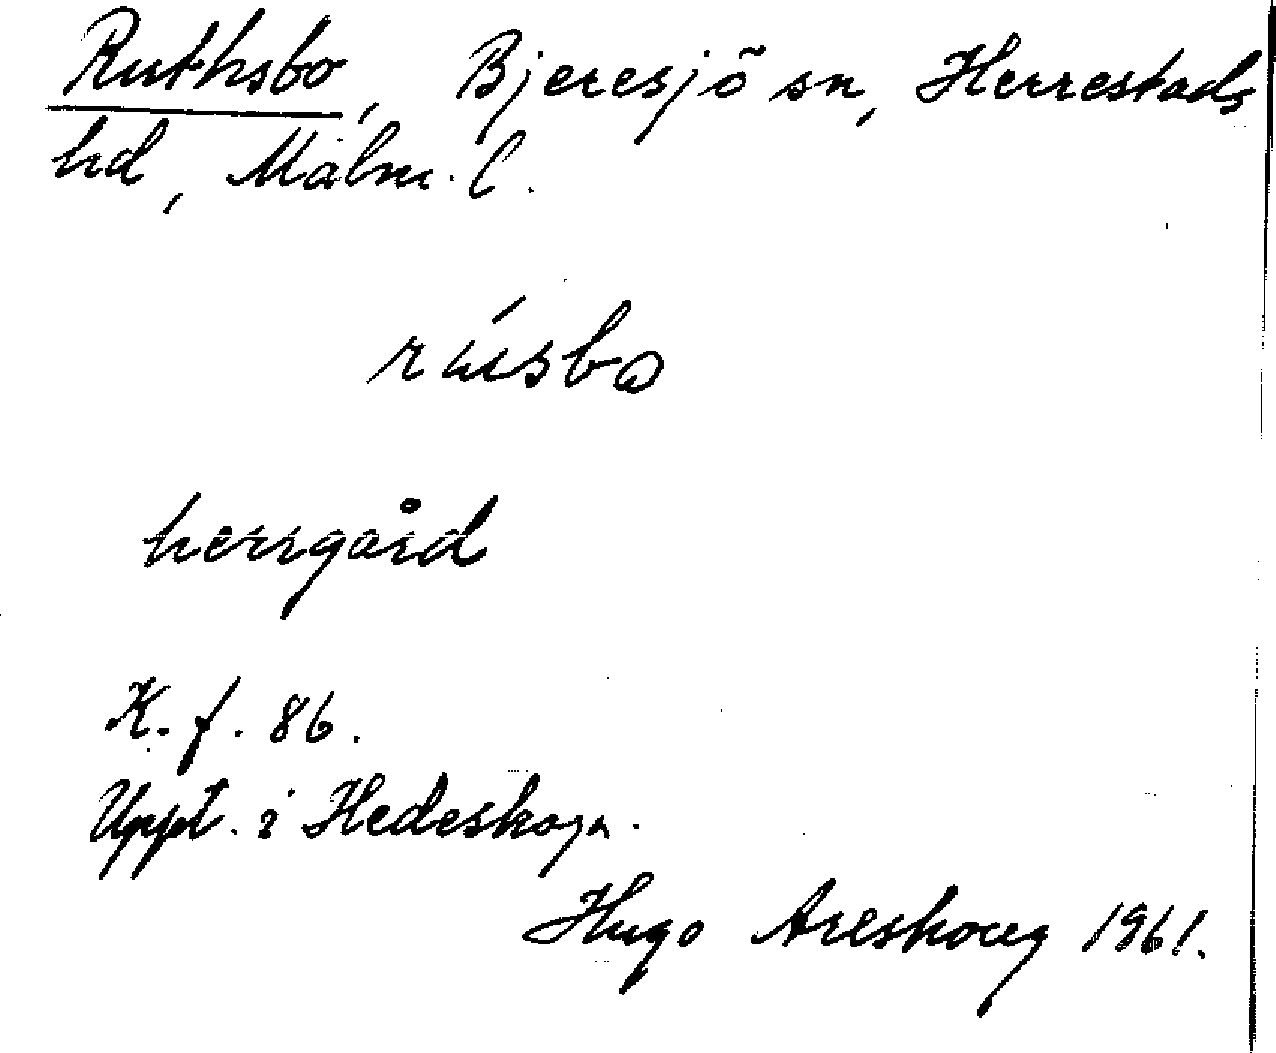 Ruthsbo, Bjeresjö sn, Herrestads
hd, Malm. l.
rúsbo
herrgård
K. f. 86.
Uppt. i Hedeskoga.
Hugo Areskoug 1961.